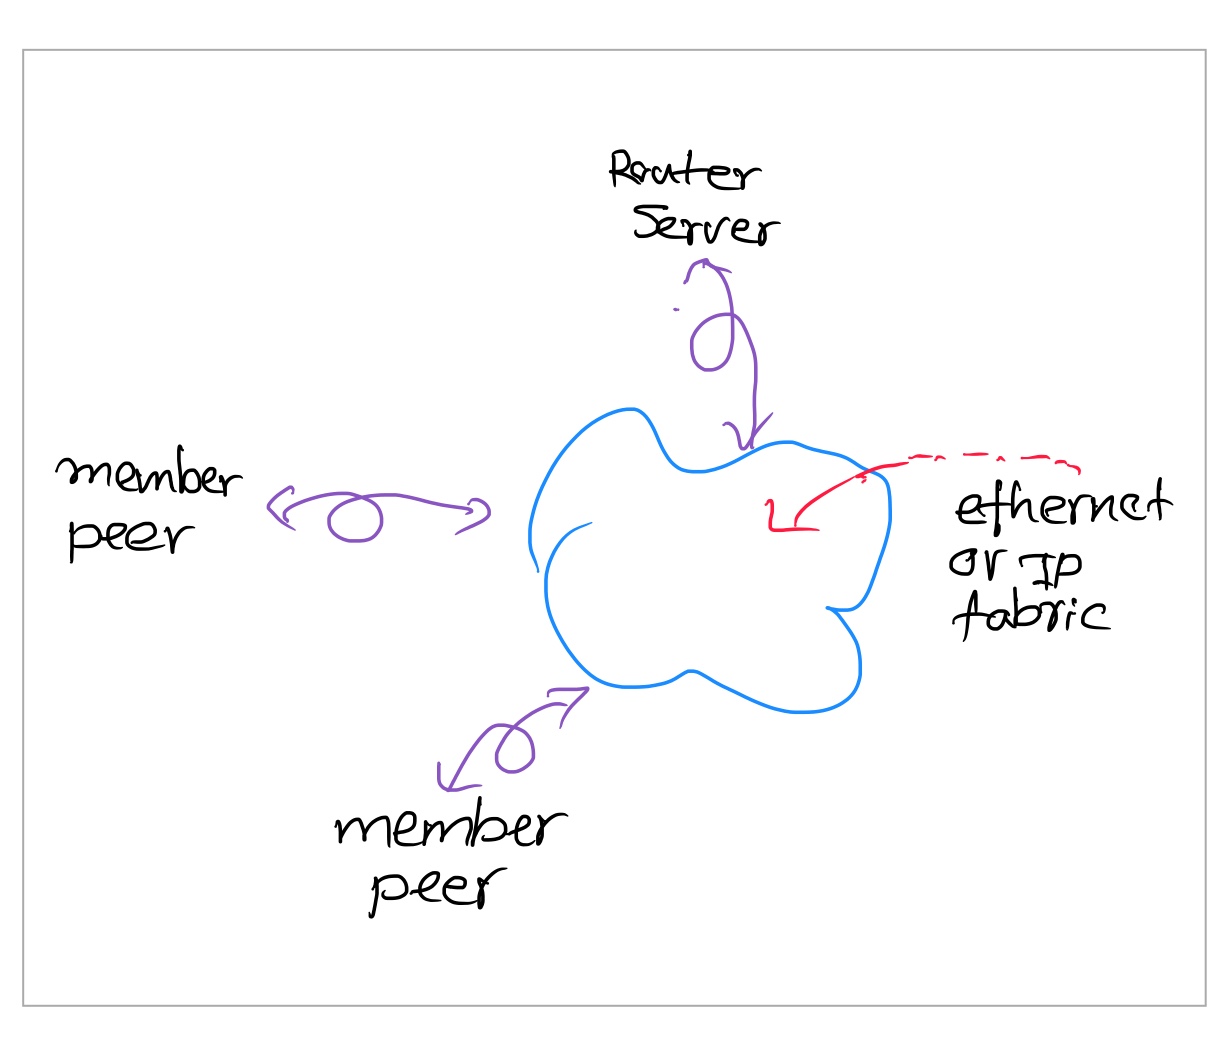 Router
Server
member
peer
ethernet
or IP
fabric
member
peer